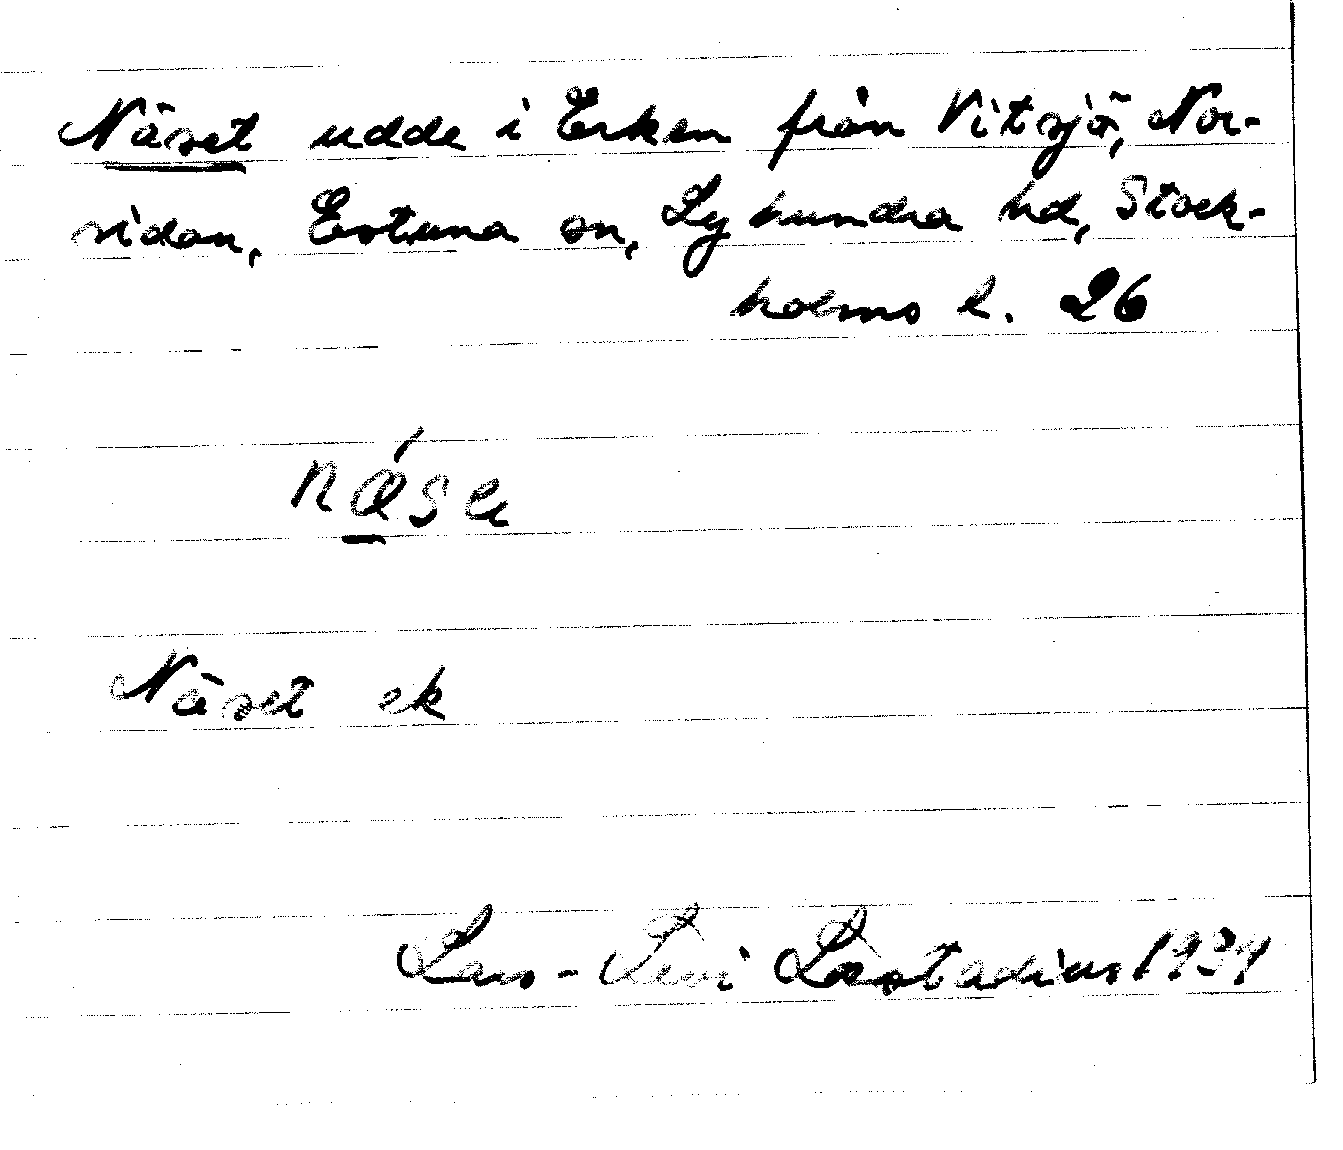 Näset udde i Erken från Vitsjö, Nor-
sidan, Estuna sn, Lyhundra hd, Stock-
holms l. 26
näse
Näset ek
Lars-Levi Læstadius 1934